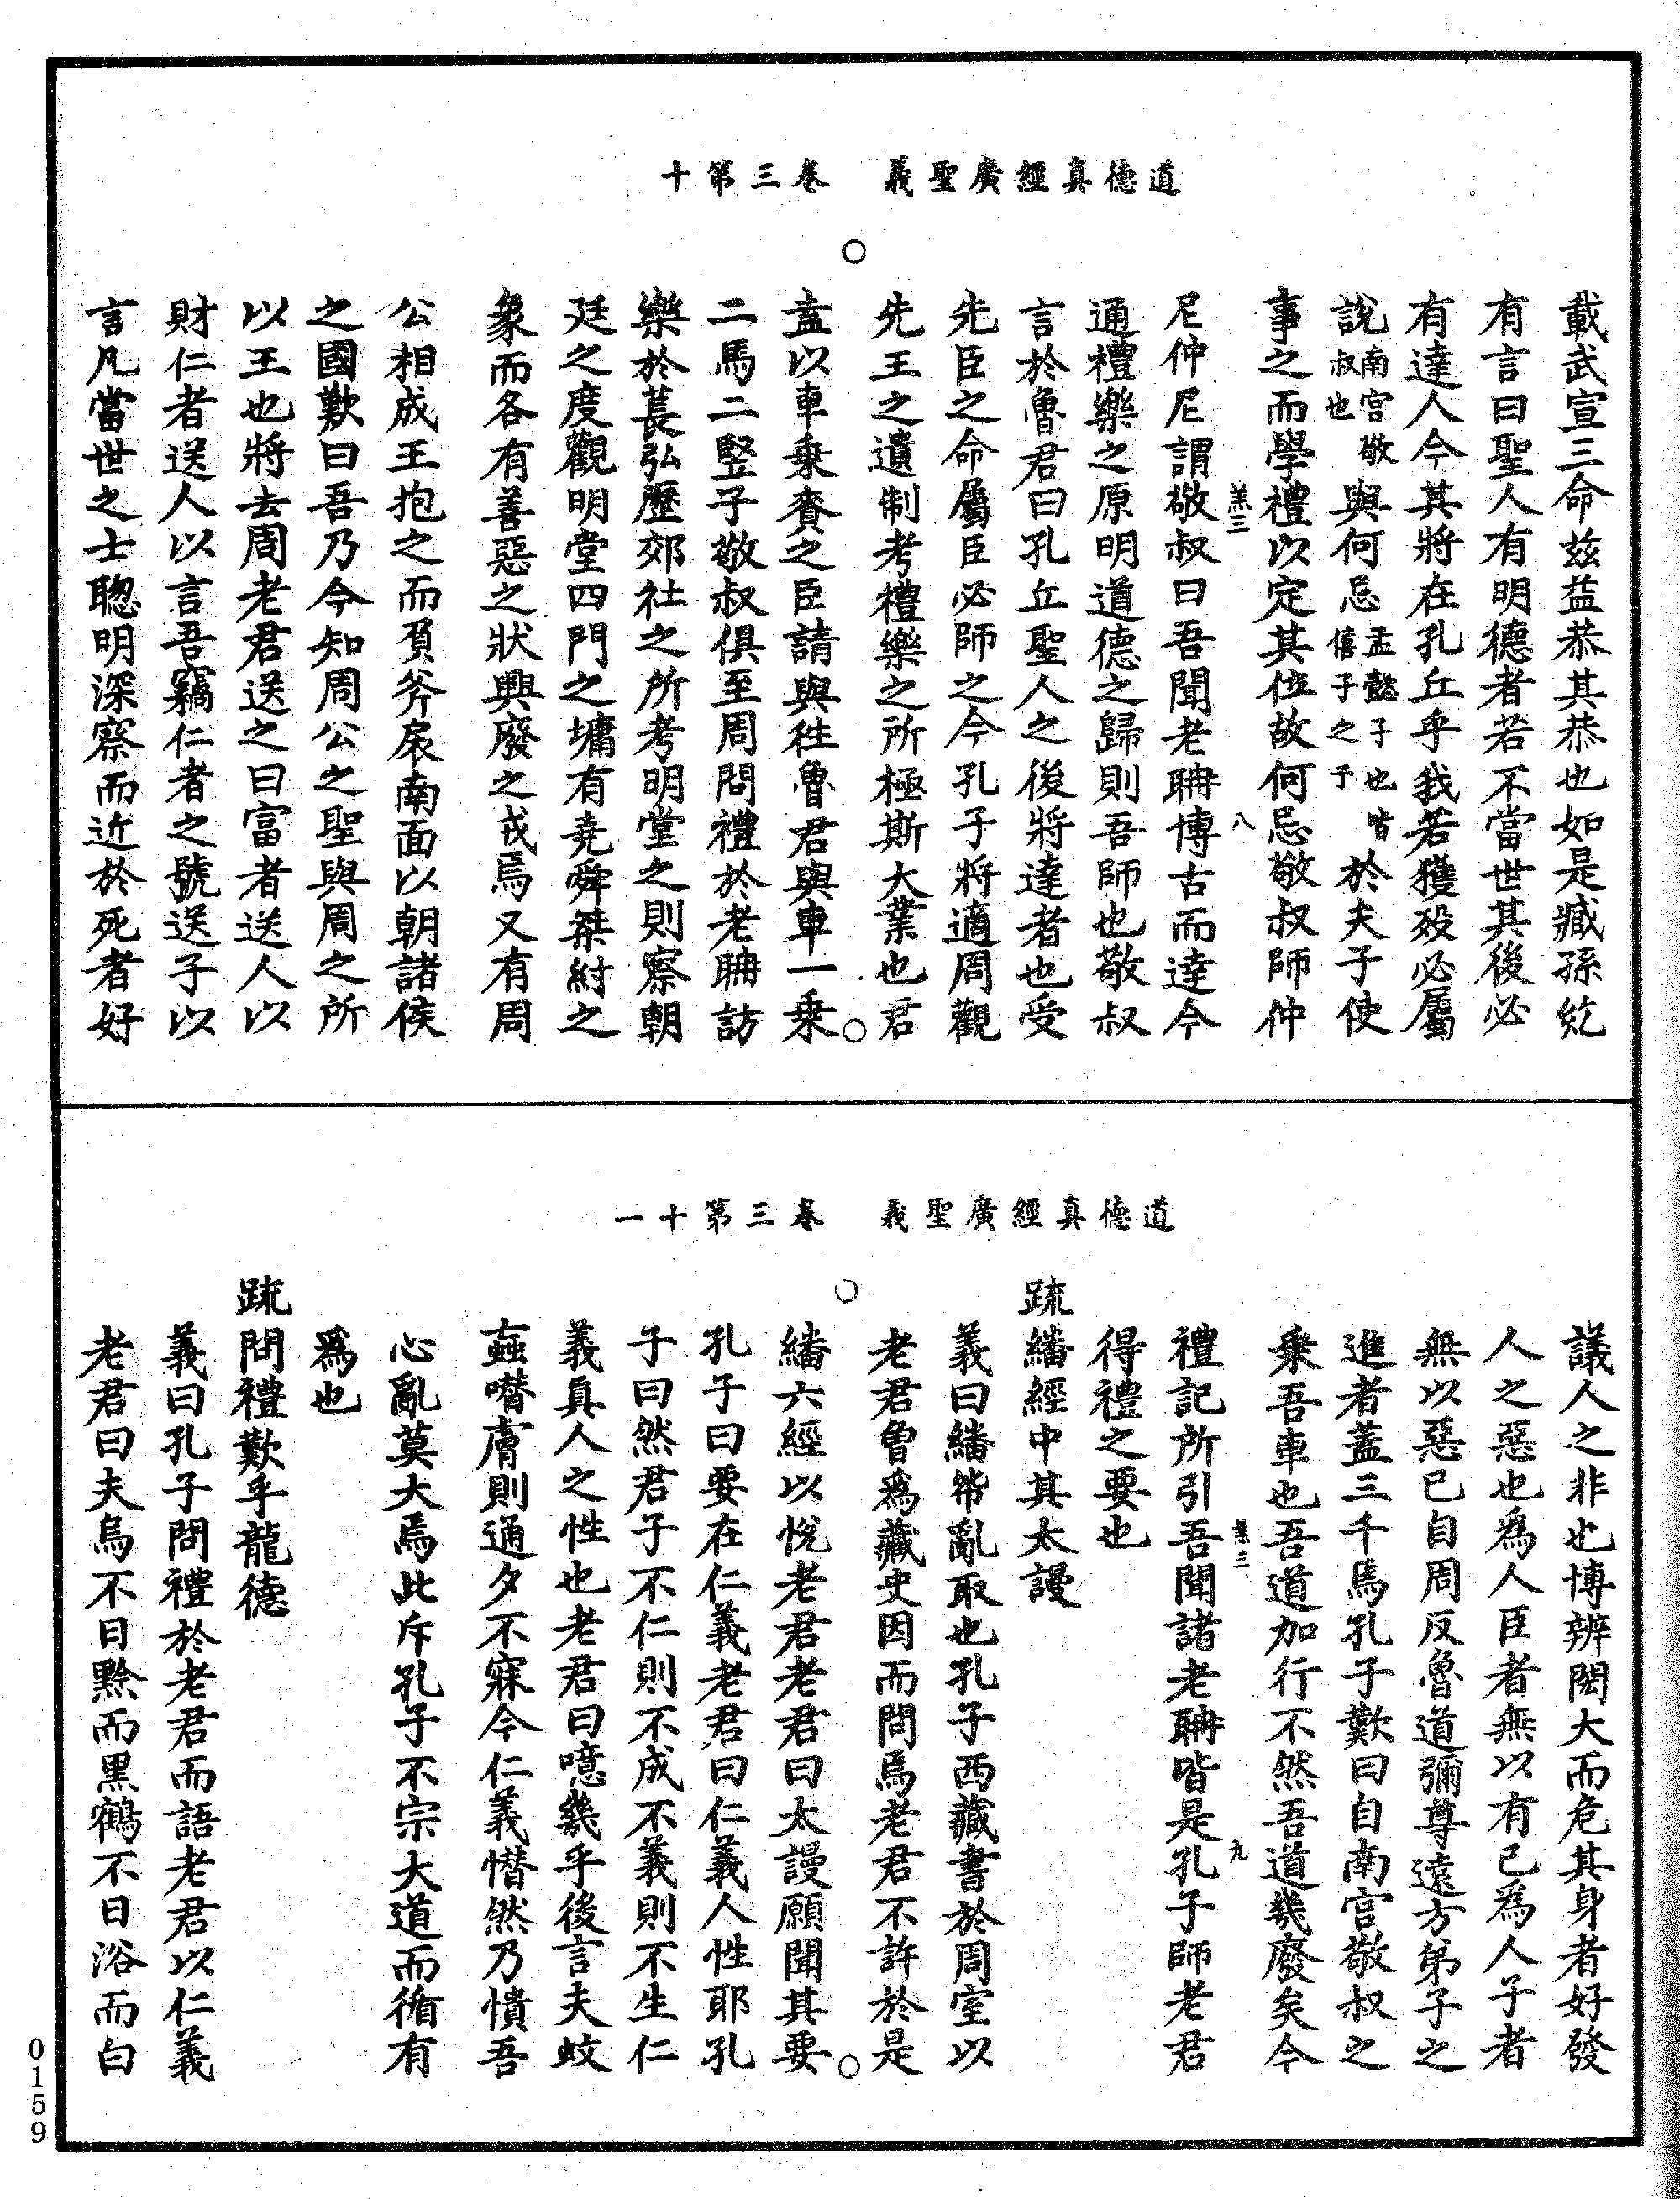 道德真經廣聖義　卷三第十
載武宣三命茲益恭其恭也如是臧孫紇
有言曰聖人有明德者若不當世其後必
有達人今其將在孔丘乎我若獲歿必屬
說南宮敬叔也與何忌孟懿子也皆僖子之子於夫子使
事之而學禮以定其位故何忌敬叔師仲
業三　八
尼仲尼謂敬叔曰吾聞老聃博古而達今
通禮樂之原明道德之歸則吾師也敬叔
言於魯君曰孔丘聖人之後將達者也受
先臣之命屬臣必師之今孔子將適周觀
先王之遺制考禮樂之所極斯大業也君
盍以車乗賚之臣請與徃魯君與車一乗
二馬二竪子敬叔俱至周問禮於老聃訪
樂於萇弘歷郊社之所考明堂之則察朝
廷之度觀明堂四門之墉有堯舜桀紂之
象而各有善惡之狀興廢之戒焉又有周
公相成王抱之而負斧扆南面以朝諸侯
之國歎曰吾乃今知周公之聖與周之所
以王也將去周老君送之曰富者送人以
財仁者送人以言吾竊仁者之號送子以
言凡當世之士聰明深察而近於死者好
道德真經廣聖義　卷三第十一
議人之非也博辨閎大而危其身者好發
人之惡也爲人臣者無以有己爲人子者
無以惡已自周反魯道彌尊遠方弟子之
進者蓋三千焉孔子歎曰自南宮敬叔之
乗吾車也吾道加行不然吾道幾廢矣今
業三　九
禮記所引吾聞諸老聃皆是孔子師老君
得禮之要也
疏繙經中其太謾
義曰繙帋亂取也孔子西藏書於周室以
老君曾爲藏史因而問焉老君不許於是
繙六經以悅老君老君曰太謾願聞其要
孔子曰要在仁義老君曰仁義人性耶孔
子曰然君子不仁則不成不義則不生仁
義真人之性也老君曰噫幾乎後言夫蚊
蝱噆膚則通夕不寐今仁義憯然乃憒吾
心亂莫大焉此斥孔子不宗大道而循有
爲也
疏問禮歎乎龍德
義曰孔子問禮於老君而語老君以仁義
老君曰夫烏不日黔而黒鶴不日浴而白
0159